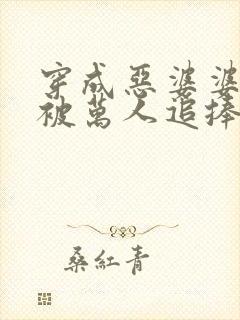 穿成惡婆婆
被萬人追捧
桑紅青